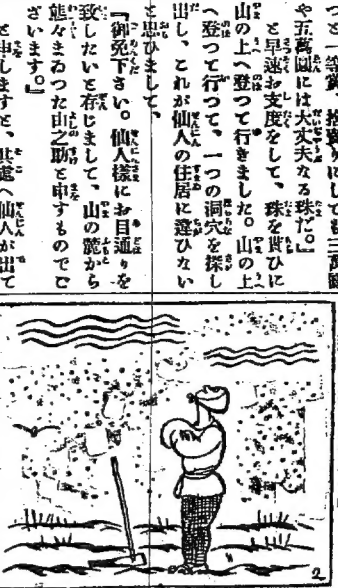 つと一等賞、
や五萬圓には大丈夫なる珠だ。』
と早速お支度をして、珠を貰ひに
山の上へ登つて行きました。山の上
へ登つて行つて、一つの洞穴を探し
出し、これが仙人の住居に違ひない
と思ひまして、
『御免下さい。仙人樣にお目通りを
致したいと存じまして、山の麓から
態々まゐつた山之助と申すものでご
ざいます。』
と申しますと、其處へ仙人が出て
2